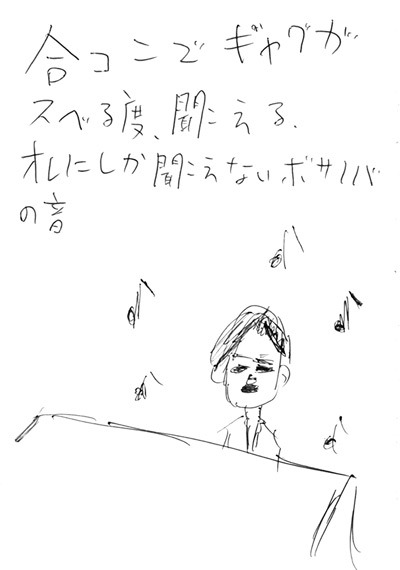 合コンでギャグが
スベる度、聞こえる、
オレにしか聞こえないボサノバ
の音